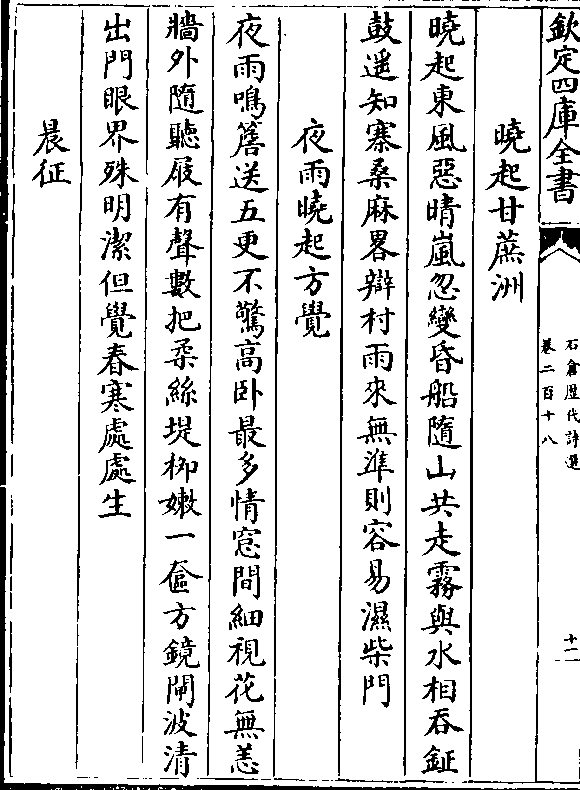 欽定四庫全書
石倉歴代詩選
卷二百十八
十二
曉起甘蔗洲
曉起東風惡晴嵐忽變昏船隨山共走霧與水相吞鉦
鼓遥知寨桑麻畧辯村雨來無準則容易濕柴門
夜雨曉起方覺
夜雨鳴簷送五更不驚高卧最多情窓間細視花無恙
牆外隨聽屐有聲數把柔絲堤栁嫩一奩方鏡閘波清
出門眼界殊明潔但覺春寒處處生
晨征